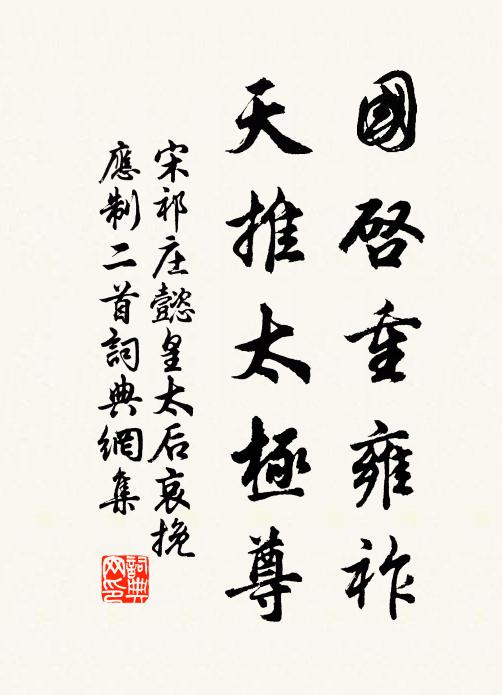 國啓重雍祚
天推太極尊
宋祁庄懿皇太后哀挽
應制二首詞典網集
詞典
网印